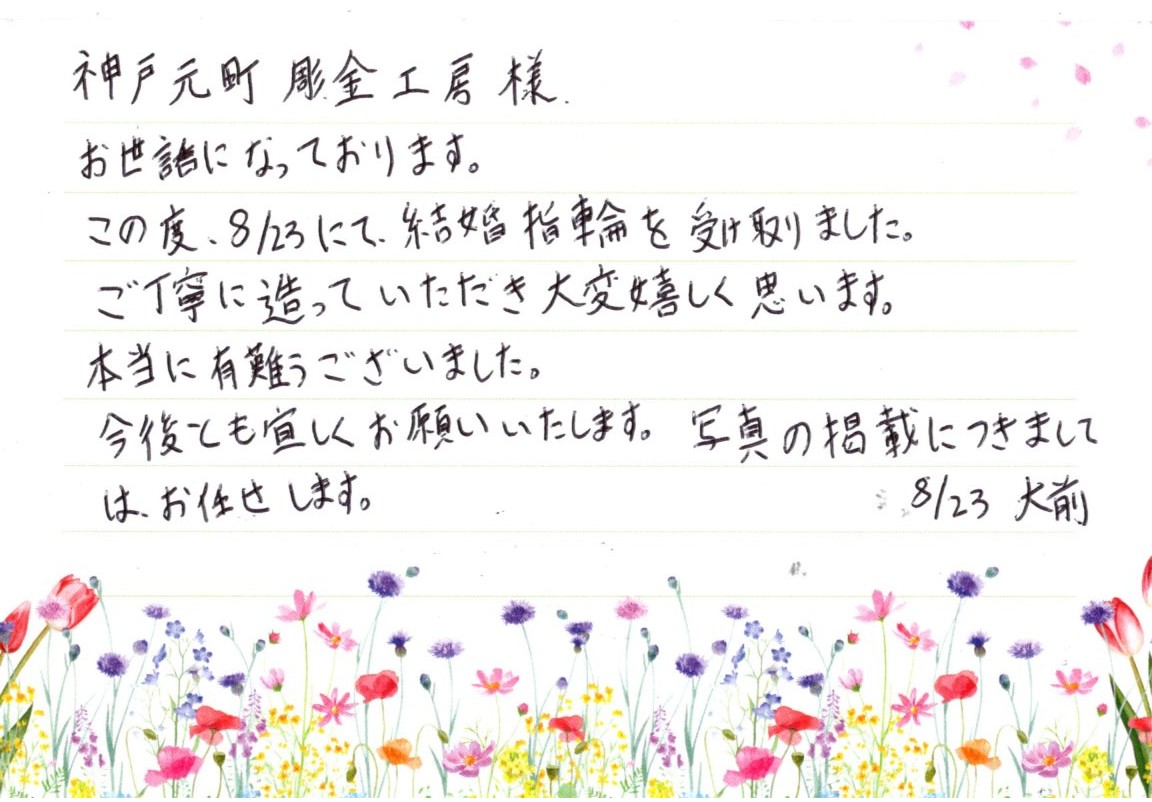 神戸元町 彫金工房 様.
お世話になっております。
この度、8/23にて、結婚指輪を受け取りました。
ご丁寧に造っていただき大変嬉しく思います。
本当に有難うございました。
今後とも宜しくお願いいたします。 写真の掲載につきまして
は、お任せします。 8/23 大前